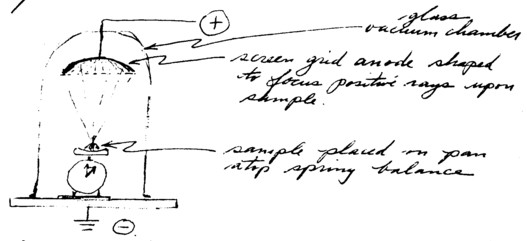 +
glass
vacuum chamber
screen grid anode shaped
to focus positive rays upon
sample.
sample placed on pan
atop spring balance
-